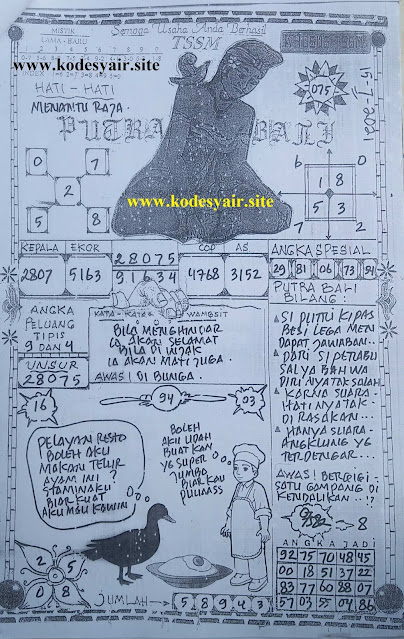 MISTIK
LAMA - BARU
Semoga Usaha Anda Berhasil
TSSM
www.kodesyair.site
HATI - HATI
MENANTU RAJA.
PUTRA BALI
075
15-7-2021
0 7
2
5 8
6 0
1 8
5 3
7 2
www.kodesyair.site
KEPALA EKOR 28075 COP AS
2807 5163 91634 4768 3152
ANGKA SPESIAL
29 81 06 73 54
ANGKA
PELUANG
TIPIS
9 DAN 4
UNSUR
28075
KATA - KATA WANGSIT
BILA MENGHINDAR
IA AKAN SELAMAT
BILA DI INJAK
IA AKAN MATI JUGA.
AWAS! DI BUNGA.
PUTRA BALI
BILANG :
SI PUTRI KIPAS
BESI LEGA MEN
DAPAT JAWABAN...
DARI SI PERABU
SALYA BAHWA
DIRINYA TAK SALAH
KARNA SUARA
HATINYA TAK
DI RASAKAN...
HANYA SUARA
ANGKLUNG YG
TERDENGAR...
AWAS! BERGIGI
SATU GAMPANG DI
KENDALIKAN..!?
8
16
94
03
PELAYAN RESTO
BOLEH AKU
MAKAN TELUR
AYAM INI ?
STAMINAKU
BIAR KUAT
AKU MAU KAWIN
BOLEH
AKU UDAH
BUATKAN
YG SUPER
JUMBO
BIAR KAU
PUUASS
2 5
0 8
JUMLAH 5 8 9 4 3
ANGKA JADI
92 75 70 48 45
00 18 51 37 22
83 77 60 88 07
57 03 55 04 86